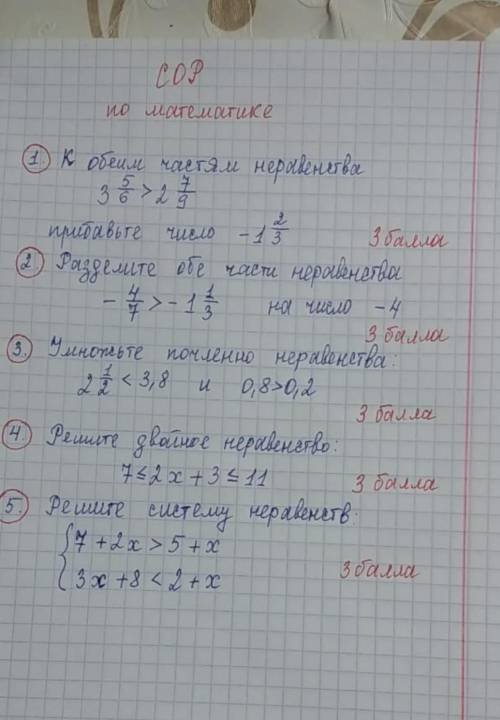 СОР
по математике
1. К обеим частям неравенства
3 5/6 > 2 7/9
прибавьте число -1 2/3 3 балла
2. Разделите обе части неравенства
- 4/7 > - 1 1/3 на число -4
3 балла
3. Умножьте почленно неравенства:
2 1/2 < 3,8 и 0,8>0,2
3 балла
4. Решите двойное неравенство:
7≤2x+3≤11 3 балла
5. Решите систему неравенств:
{7+2x>5+x
3x+8<2+x 3 балла